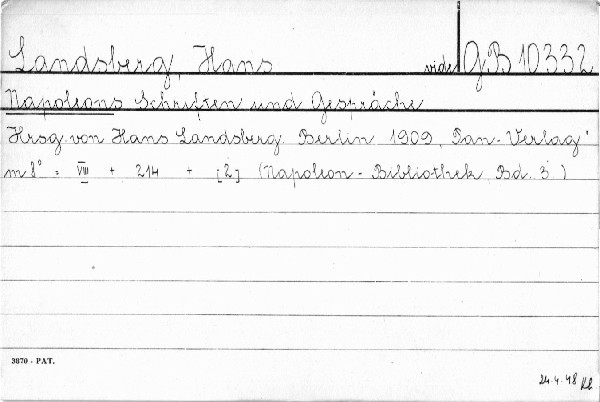 Landsberg, Hans vide GB 10332
Napoleons Schriften und Gespräche
Hrsg. von Hans Landsberg. Berlin 1909, Pan-Verlag
m 8° = VIII + 214 + [2] (Napoleon-Bibliothek Bd. 3.)
3870 - PAT.
24.4.48